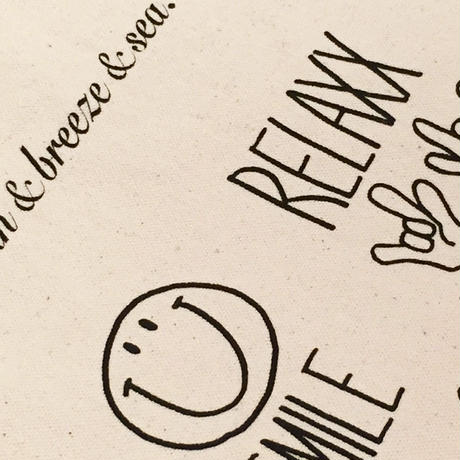 & breeze & sea.
RELAXX
SMILE